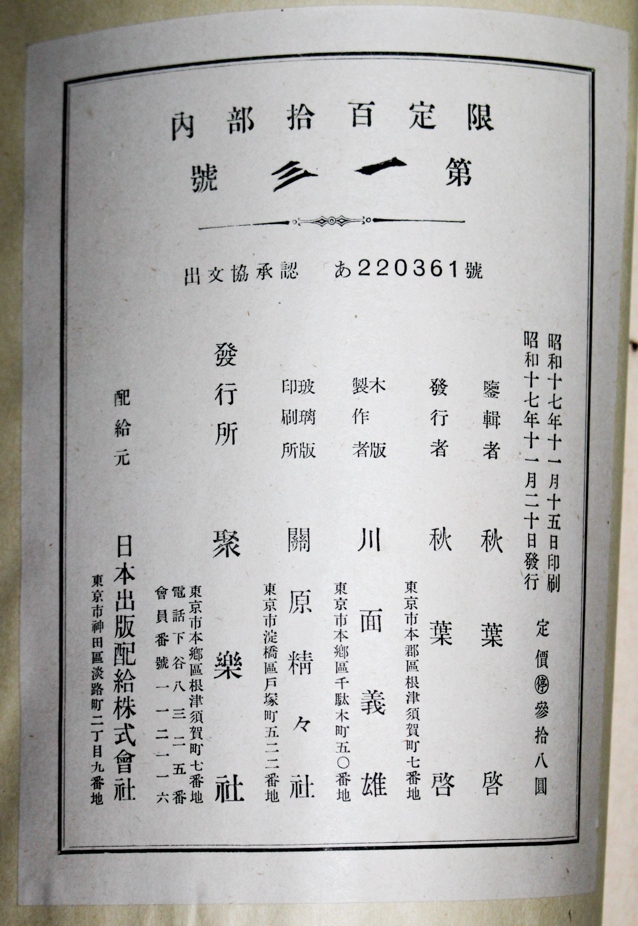 限定百拾部內
第一三號
出文協承認 あ220361號
昭和十七年十一月十五日印刷
昭和十七年十一月二十日發行
定價㊡參拾八圓
鑒輯者 秋葉啓
發行者 秋葉啓
東京市本郡區根津須賀町七番地
木版製作者 川面義雄
東京市本鄉區千駄木町五〇番地
玻璃版印刷所 關原精々社
東京市淀橋區戶塚町五二二番地
發行所 聚樂社
東京市本鄉區根津須賀町七番地
電話下谷八三二五番
會員番號一一二一一六
配給元 日本出版配給株式會社
東京市神田區淡路町二丁目九番地